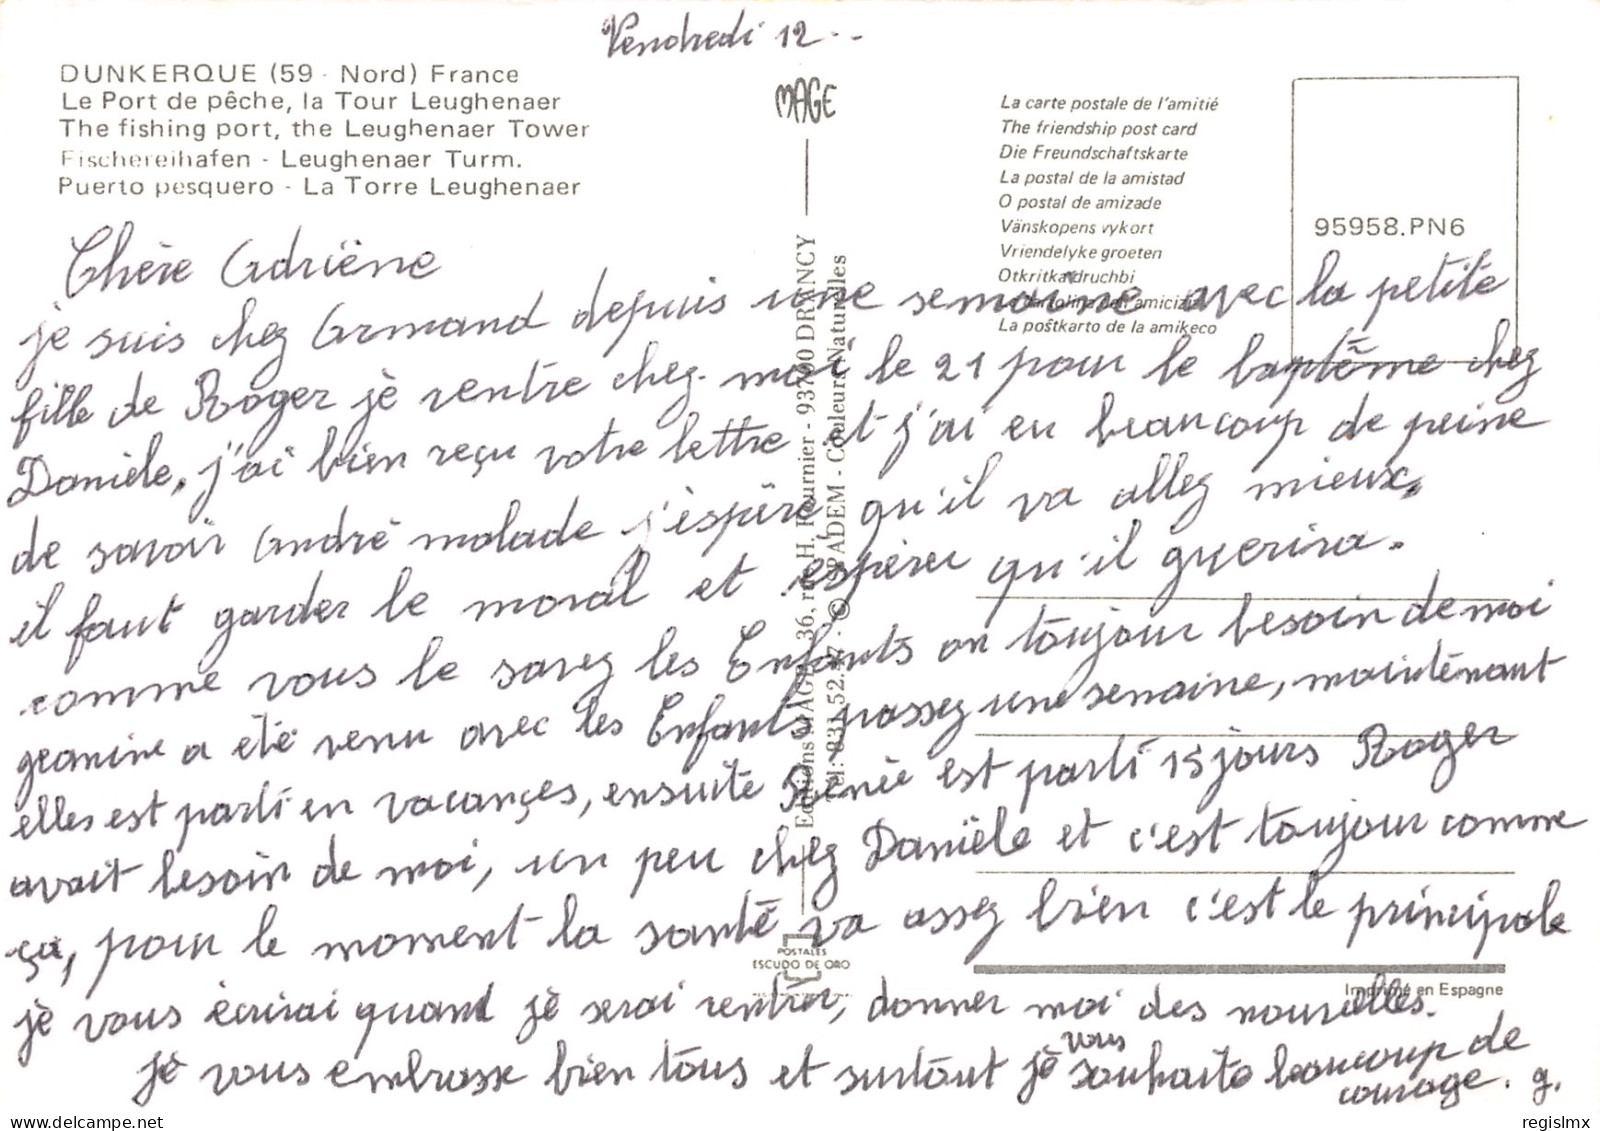 Vendredi 12..
DUNKERQUE (59 - Nord) France
Le Port de pêche, la Tour Leughenaer
The fishing port, the Leughenaer Tower
Fischereihafen - Leughenaer Turm.
Puerto pesquero - La Torre Leughenaer
MAGE
Editions MAGE, 36, rue H. Fournier - 93700 DRANCY
Tél: 831.52. - © SPADEM - Couleurs Naturelles
La carte postale de l'amitié
The friendship post card
Die Freundschaftskarte
La postal de la amistad
O postal de amizade
Vänskopens vykort
Vriendelyke groeten
Otkritka druchbi
cartolina dell'amicizia
La poŝtkarto de la amikeco
95958.PN6
Chère Adriëne
je suis chez Armand depuis une semaine avec la petite
fille de Roger jè rentre chez moi le 21 pour le baptême chez
Danièle, j'ai bien reçu votre lettre et j'ai eu beaucoup de peine
de savoir André malade j'èspère qu'il va allez mieux,
il faut garder le moral et espèrer qu'il guerira.
comme vous le savez les Enfants on toujour besoin de moi
geanine a été venu avec les Enfants passez une semaine, maintenant
elles est parti en vacançes, ensuite Renée est parti 15 jours Roger
avait besoin de moi, un peu chez Danièle et c'est toujour comme
ça, pour le moment la santé va assez bien c'est le principale
jè vous écrirai quand jè serai rentrer, donner moi des nouvelles.
jè vous embrasse bien tous et surtout jè vous souhaite beaucoup de
courage. g.
POSTALES
ESCUDO DE ORO
Imprimé en Espagne
regislmx